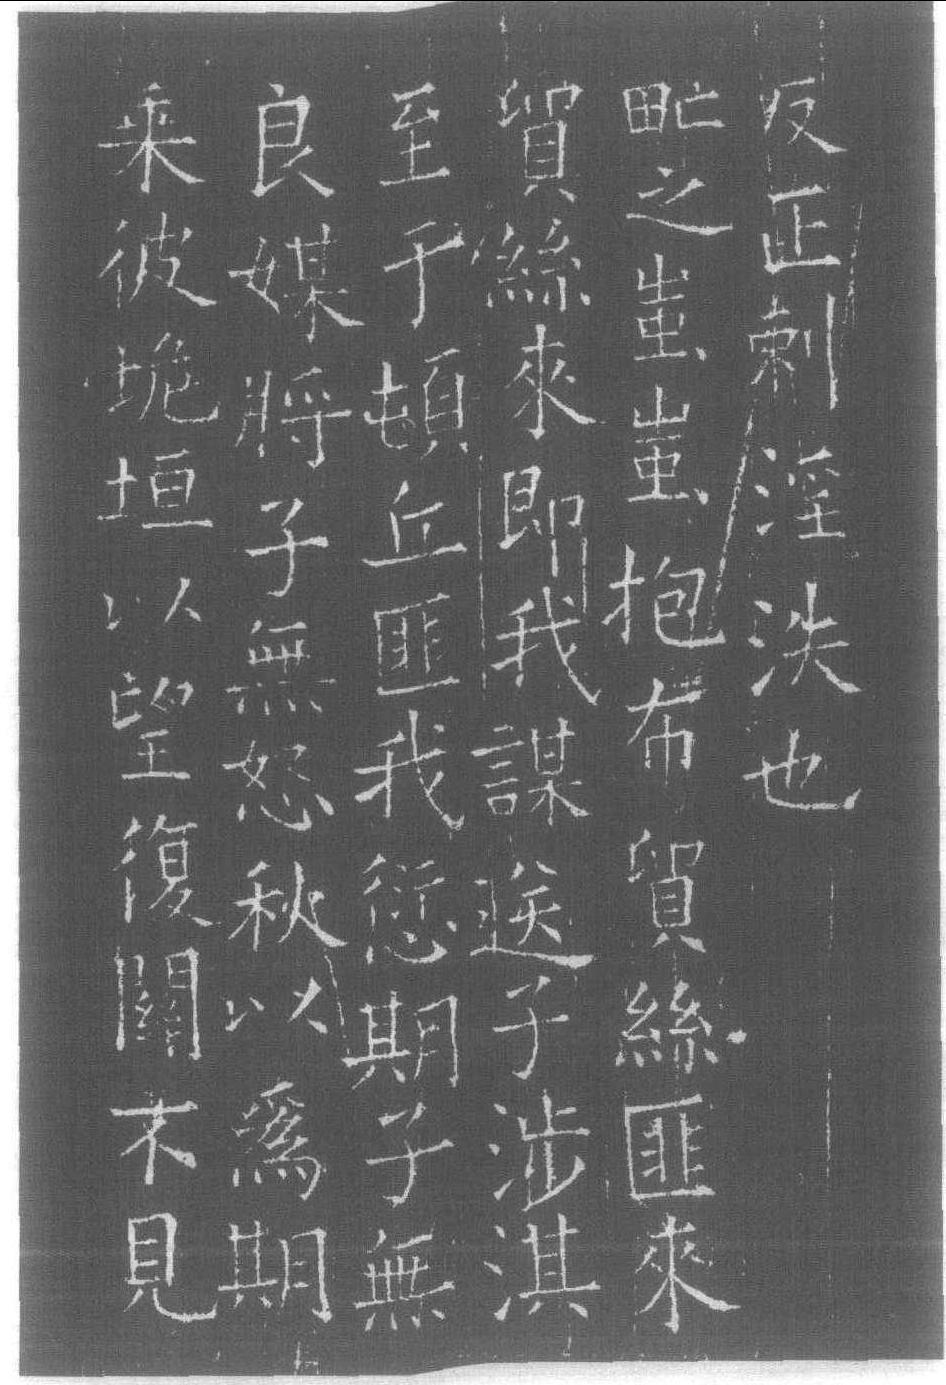 反正刺淫泆也
甿之蚩蚩抱布貿絲匪來
貿絲來即我謀送子涉淇
至于頓丘匪我愆期子無
良媒將子無怒秋以爲期
乗彼垝垣以望復關不見